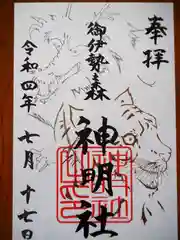 奉拝
御伊勢森
神明社
令和四年七月十七日